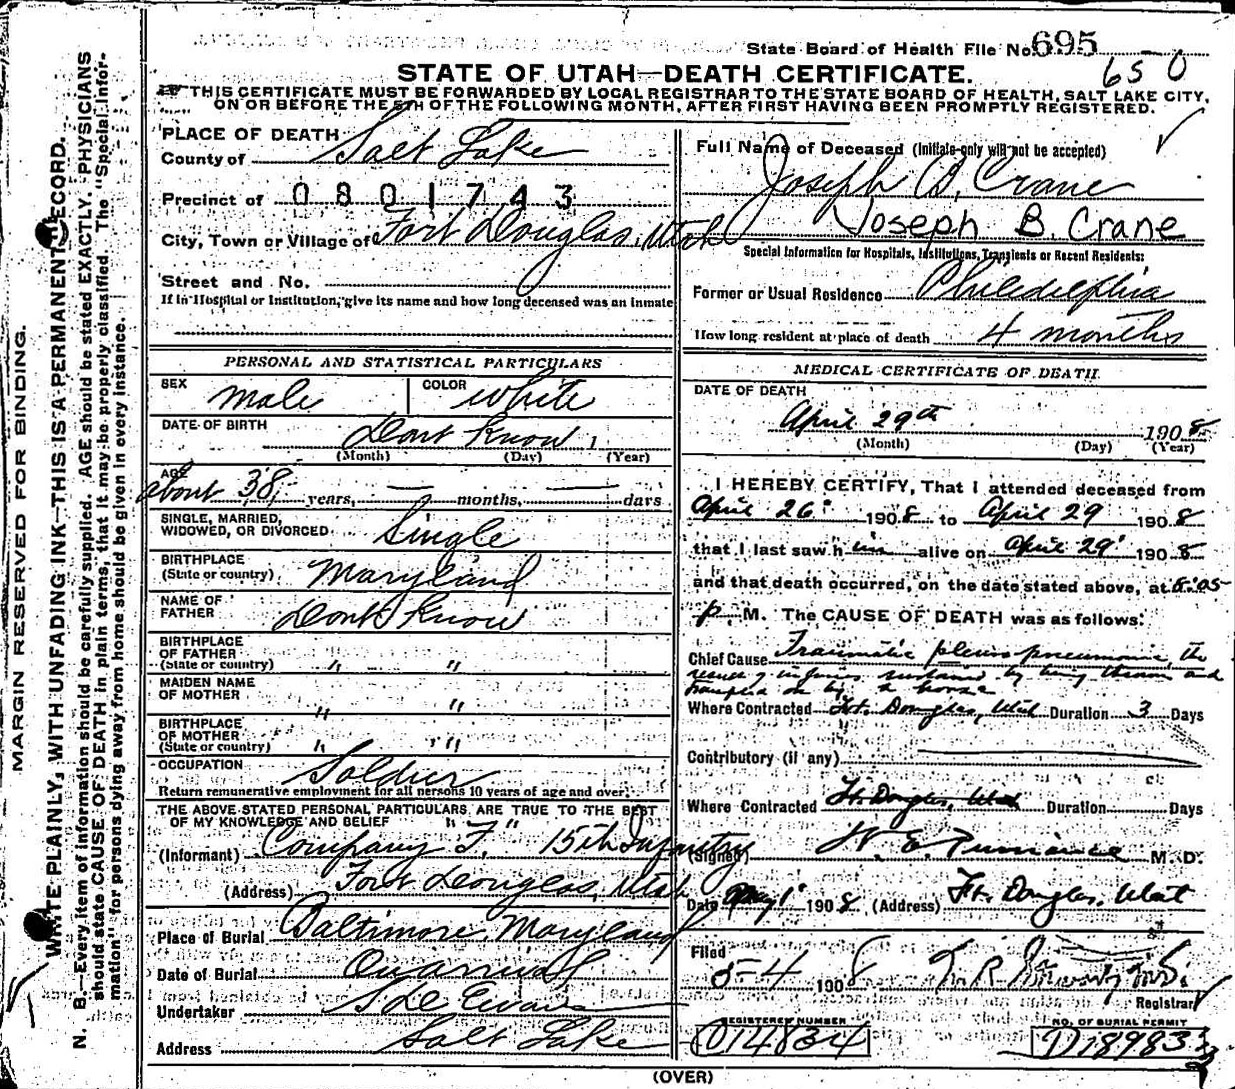 State Board of Health File No. 695
650
STATE OF UTAH—DEATH CERTIFICATE.
THIS CERTIFICATE MUST BE FORWARDED BY LOCAL REGISTRAR TO THE STATE BOARD OF HEALTH, SALT LAKE CITY,
ON OR BEFORE THE 5TH OF THE FOLLOWING MONTH, AFTER FIRST HAVING BEEN PROMPTLY REGISTERED.
MARGIN RESERVED FOR BINDING.
WRITE PLAINLY, WITH UNFADING INK—THIS IS A PERMANENT RECORD.
N. B.—Every item of information should be carefully supplied. AGE should be stated EXACTLY. PHYSICIANS
should state CAUSE OF DEATH in plain terms, that it may be properly classified. The "Special Infor-
mation" for persons dying away from home should be given in every instance.
PLACE OF DEATH
County of Salt Lake
Precinct of 0801743
City, Town or Village of Fort Douglas, Utah
Street and No.
If in Hospital or Institution, give its name and how long deceased was an inmate
PERSONAL AND STATISTICAL PARTICULARS
SEX male COLOR White
DATE OF BIRTH Dont Know
(Month) (Day) (Year)
AGE about 38 years, — months, — days
SINGLE, MARRIED,
WIDOWED, OR DIVORCED Single
BIRTHPLACE
(State or country) Maryland
NAME OF
FATHER Dont Know
BIRTHPLACE
OF FATHER
(State or country) " "
MAIDEN NAME
OF MOTHER " "
BIRTHPLACE
OF MOTHER
(State or country) " "
OCCUPATION Soldier
Return remunerative employment for all persons 10 years of age and over.
THE ABOVE STATED PERSONAL PARTICULARS ARE TRUE TO THE BEST
OF MY KNOWLEDGE AND BELIEF
(Informant) Company "F," 15th Infantry
(Address) Fort Douglas, Utah
Place of Burial Baltimore, Maryland
Date of Burial On arrival
Undertaker S D Evans
Address Salt Lake
Full Name of Deceased (Initials only will not be accepted)
Joseph B. Crane
Joseph B. Crane
Special Information for Hospitals, Institutions, Transients or Recent Residents:
Former or Usual Residence Philidelphia
How long resident at place of death 4 months
MEDICAL CERTIFICATE OF DEATH
DATE OF DEATH
April 29th 1908
(Month) (Day) (Year)
I HEREBY CERTIFY, That I attended deceased from
April 26 1908 to April 29 1908
that I last saw him alive on April 29 1908
and that death occurred, on the date stated above, at 5:05
p M. The CAUSE OF DEATH was as follows:
Chief Cause Traumatic pleuro pneumonia, the
result of injuries sustained by being thrown and
tramped on by a horse
Where Contracted Ft. Douglas, Utah Duration 3 Days
Contributory (if any)
Where Contracted Ft. Douglas, Utah Duration Days
(Signed) W. E. M. D.
Date May 1 1908 (Address) Ft. Douglas, Utah
Filed 5-4 1908
Registrar
REGISTERED NUMBER
D14834
NO. OF BURIAL PERMIT
D18983
(OVER)